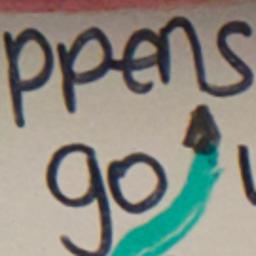 ppens
go